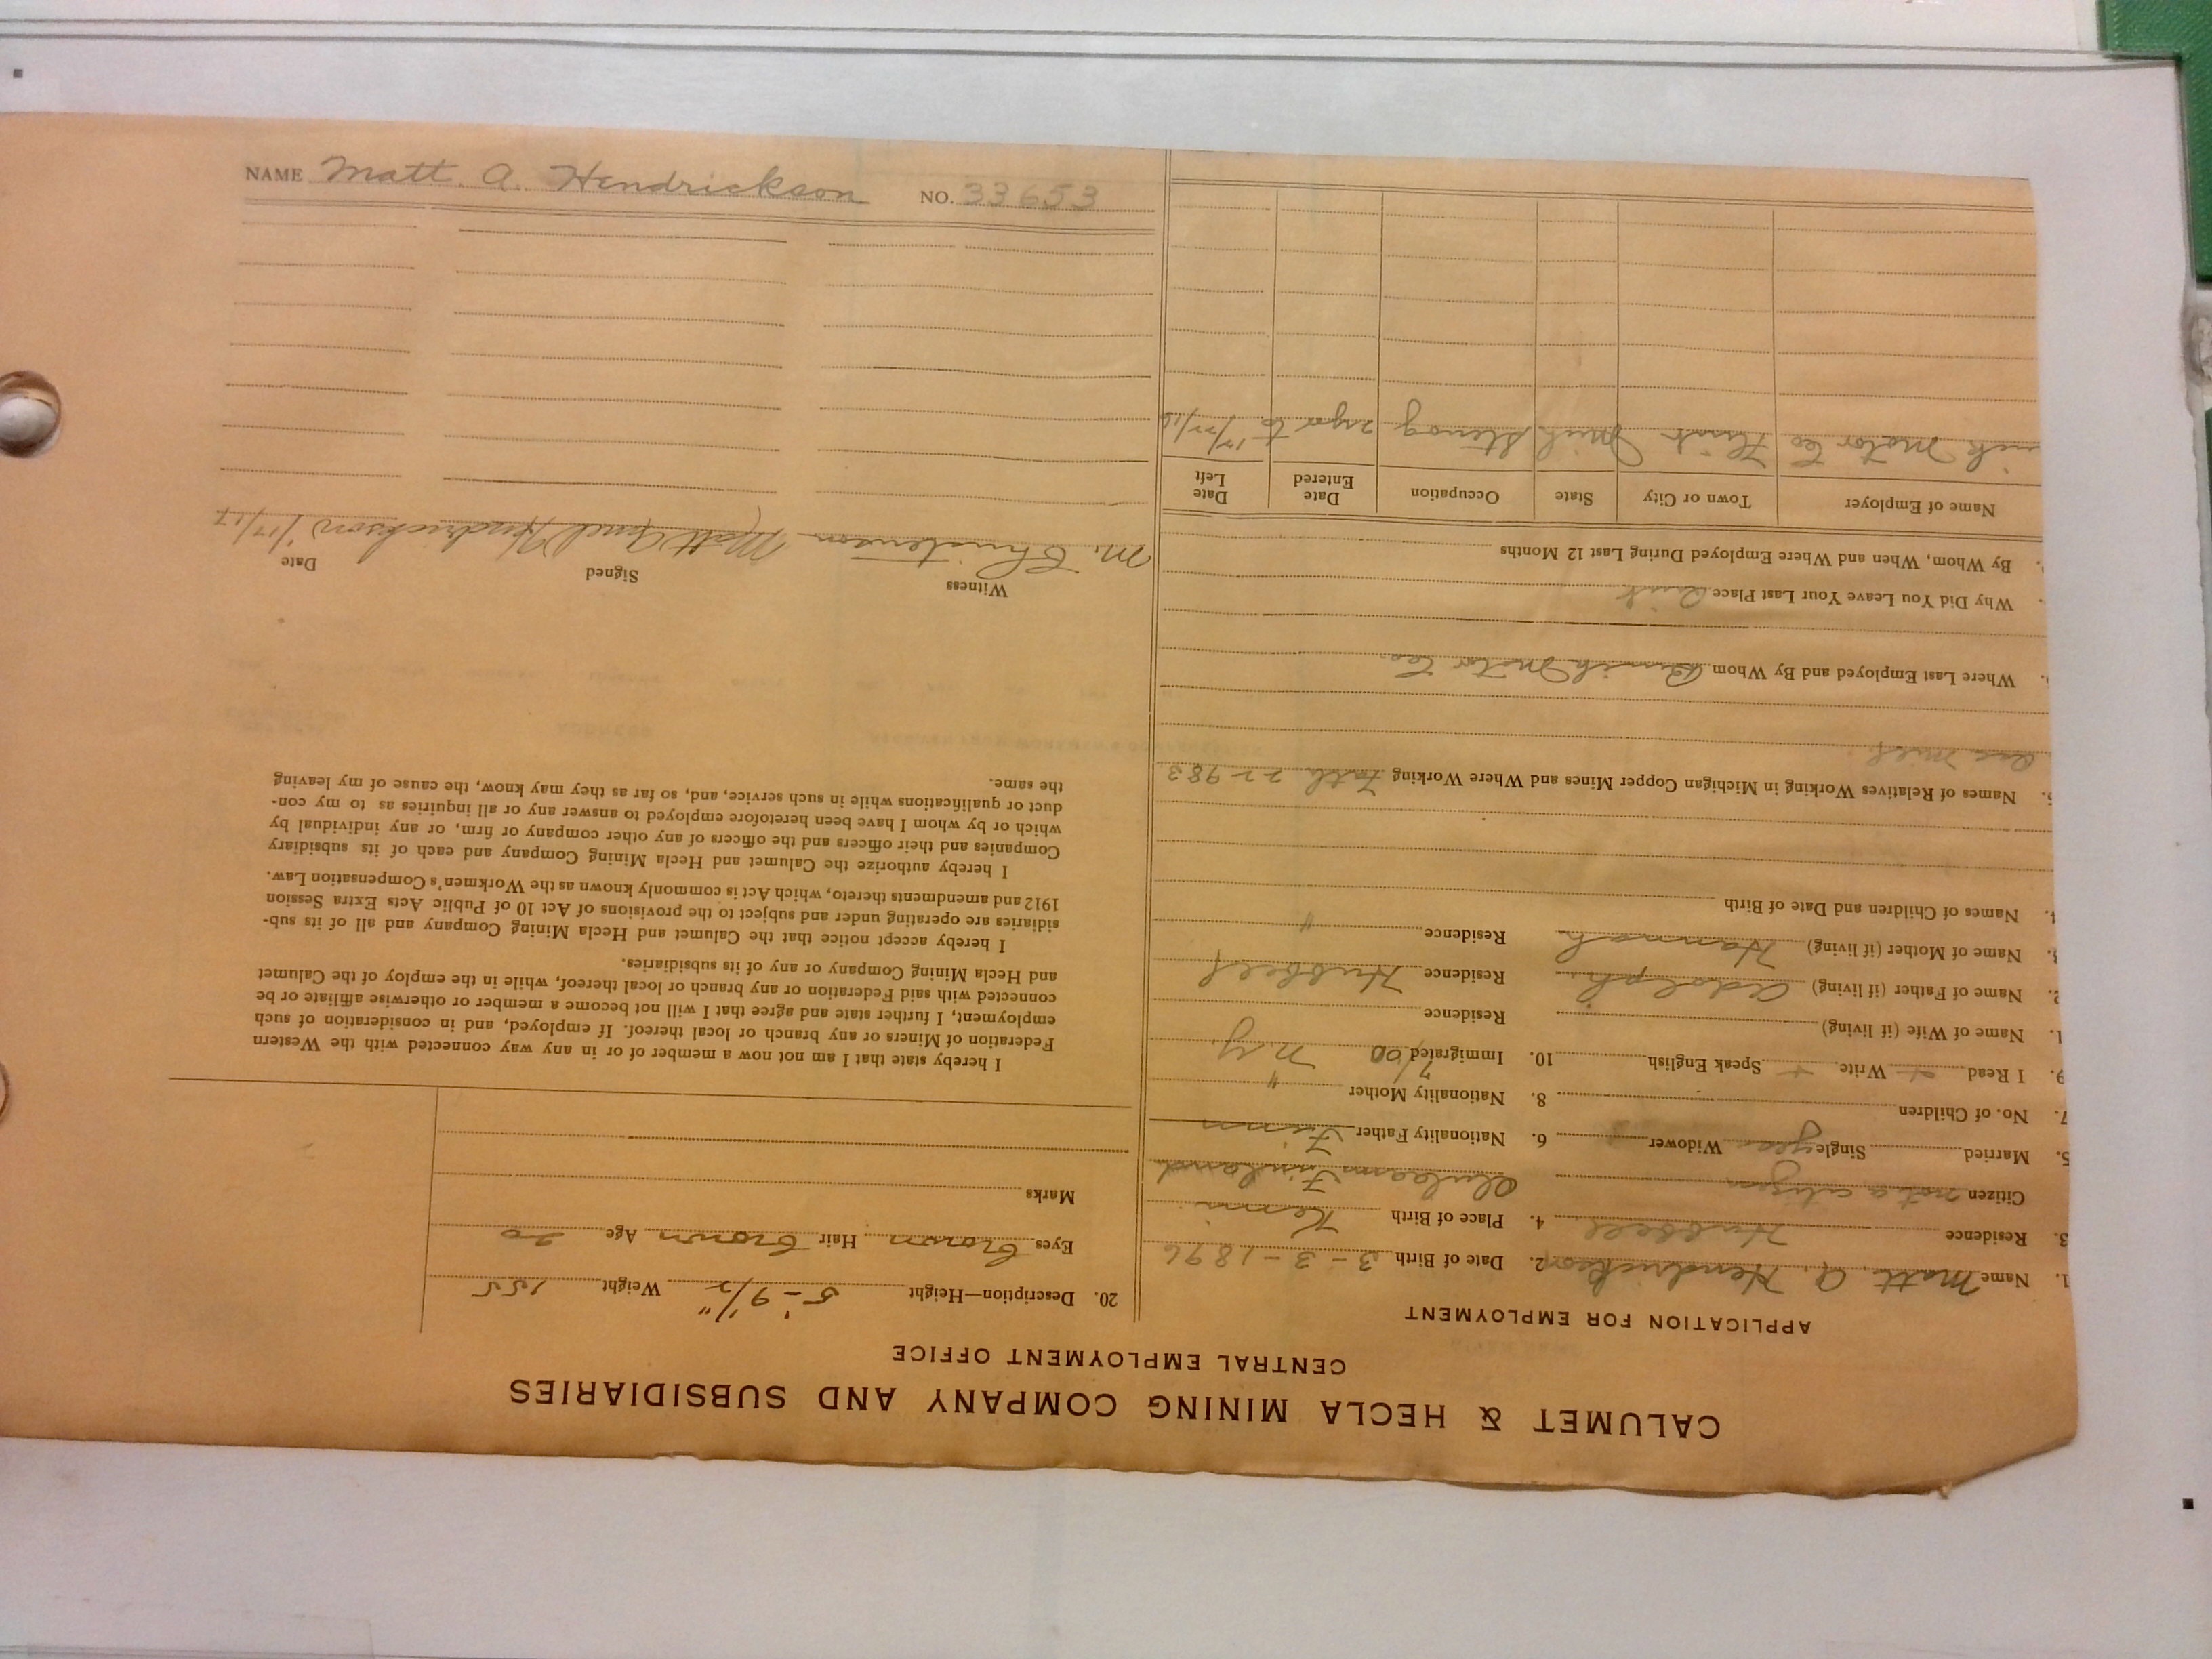 CALUMET & HECLA MINING COMPANY AND SUBSIDIARIES
CENTRAL EMPLOYMENT OFFICE
APPLICATION FOR EMPLOYMENT
1. Name Matt. A. Hendrickson 2. Date of Birth 3-3-1896
3. Residence Hubbell 4. Place of Birth Kemi
Citizen not a citizen Oulu Finland
5. Married Single yes Widower 6. Nationality Father Finn
7. No. of Children 8. Nationality Mother "
9. I Read + Write + Speak English 10. Immigrated 7/00 N.Y.
1. Name of Wife (if living) Residence
2. Name of Father (if living) Adolph Residence Hubbell
3. Name of Mother (if living) Hannah Residence "
4. Names of Children and Date of Birth
5. Names of Relatives Working in Michigan Copper Mines and Where Working Fath 22983
Where Last Employed and By Whom Buick Motor Co.
Why Did You Leave Your Last Place Quit
By Whom, When and Where Employed During Last 12 Months
Name of Employer Town or City State Occupation Date Entered Date Left
uick Motor Co Flint Mich Stenog 2 yrs to 12/22/16
20. Description—Height 5'-9 1/2" Weight 155
Eyes Brown Hair Brown Age 20
Marks
I hereby state that I am not now a member of or in any way connected with the Western
Federation of Miners or any branch or local thereof. If employed, and in consideration of such
employment, I further state and agree that I will not become a member or otherwise affiliate or be
connected with said Federation or any branch or local thereof, while in the employ of the Calumet
and Hecla Mining Company or any of its subsidiaries.
I hereby accept notice that the Calumet and Hecla Mining Company and all of its sub-
sidiaries are operating under and subject to the provisions of Act 10 of Public Acts Extra Session
1912 and amendments thereto, which Act is commonly known as the Workmen's Compensation Law.
I hereby authorize the Calumet and Hecla Mining Company and each of its subsidiary
Companies and their officers and the officers of any other company or firm, or any individual by
which or by whom I have been heretofore employed to answer any or all inquiries as to my con-
duct or qualifications while in such service, and, so far as they may know, the cause of my leaving
the same.
Witness Signed Date
M. Christenson Matt Hendrickson 1/17/17
NAME Matt. A. Hendrickson NO. 33653